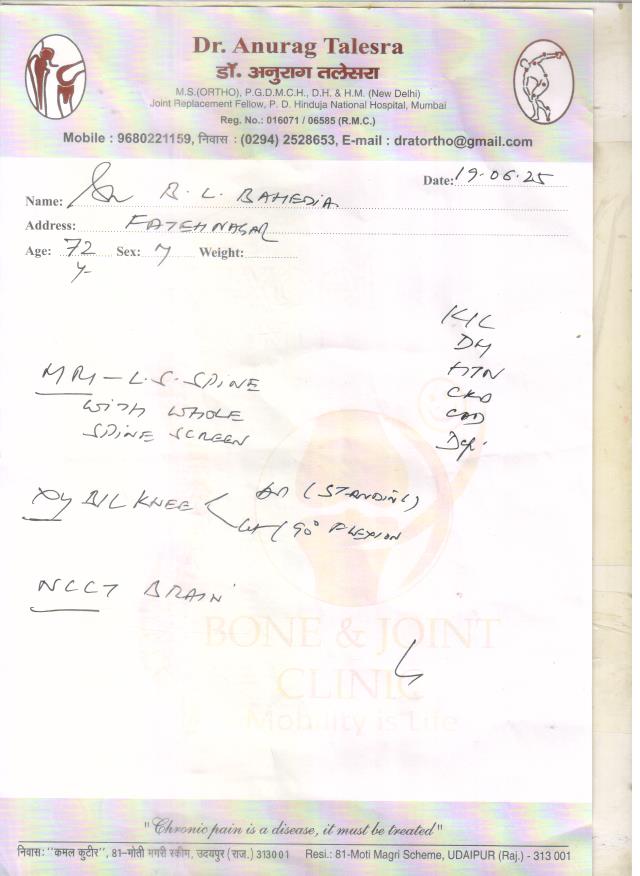 Dr. Anurag Talesra
डॉ. अनुराग तलेसरा
M.S.(ORTHO), P.G.D.M.C.H., D.H. & H.M. (New Delhi)
Joint Replacement Fellow, P. D. Hinduja National Hospital, Mumbai
Reg. No.: 016071 / 06585 (R.M.C.)
Mobile : 9680221159, निवास : (0294) 2528653, E-mail : dratortho@gmail.com
Date: 19.06.25
Name: B. L. BAHEDIA
Address: FATEHNAGAR
Age: 72 Sex: M Weight:
y
K/C
DM
HTN
CKD
CAD
MRI - L.S. SPINE
WITH WHOLE
SPINE SCREEN
Xy B/L KNEE AP (STANDING)
Lat 90° FLEXION
NCCT BRAIN
BONE & JOINT
CLINIC
Mobility is Life
"Chronic pain is a disease, it must be treated"
निवास: "कमल कुटीर", 81-मोती मगरी स्कीम, उदयपुर (राज.) 313001 Resi.: 81-Moti Magri Scheme, UDAIPUR (Raj.) - 313 001